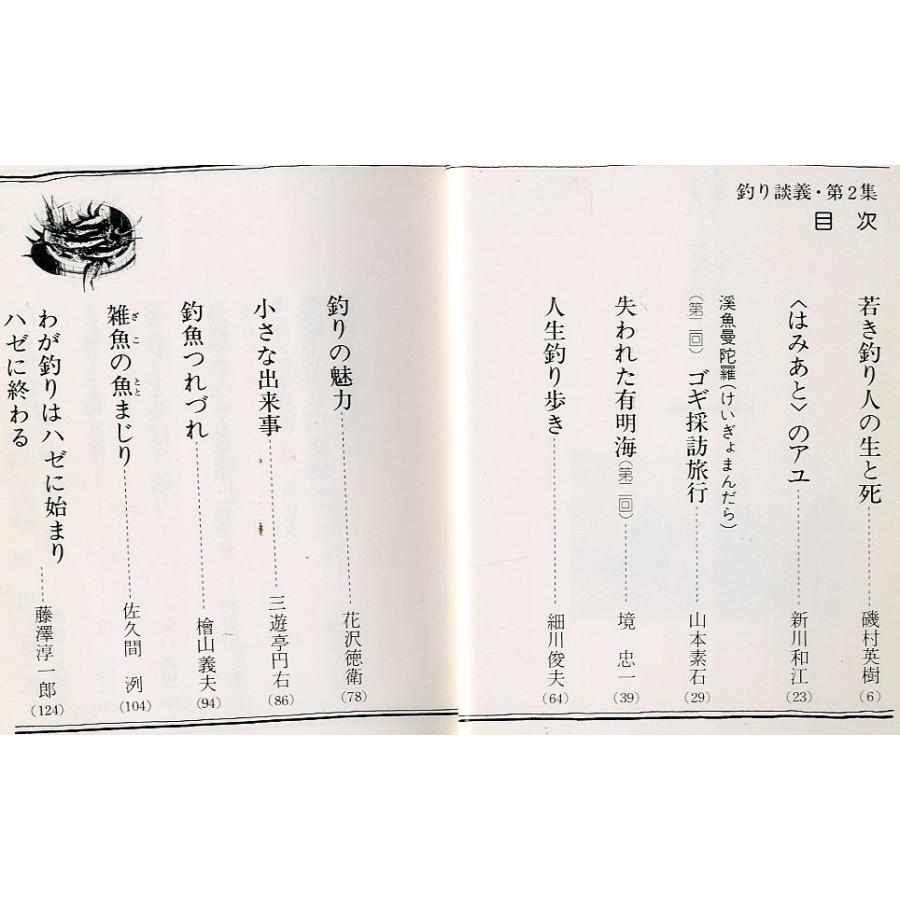 釣り談義・第2集
目次
若き釣り人の生と死 磯村英樹 (6)
〈はみあと〉のアユ 新川和江 (23)
渓魚曼陀羅(けいぎょまんだら)
(第二回) ゴギ採訪旅行 山本素石 (29)
失われた有明海(第二回) 境忠一 (39)
人生釣り歩き 細川俊夫 (64)
釣りの魅力 花沢徳衛 (78)
小さな出来事 三遊亭円右 (86)
釣魚つれづれ 檜山義夫 (94)
雑魚(ざこ)の魚(とと)まじり 佐久間洌 (104)
わが釣りはハゼに始まり
ハゼに終わる 藤澤淳一郎 (124)